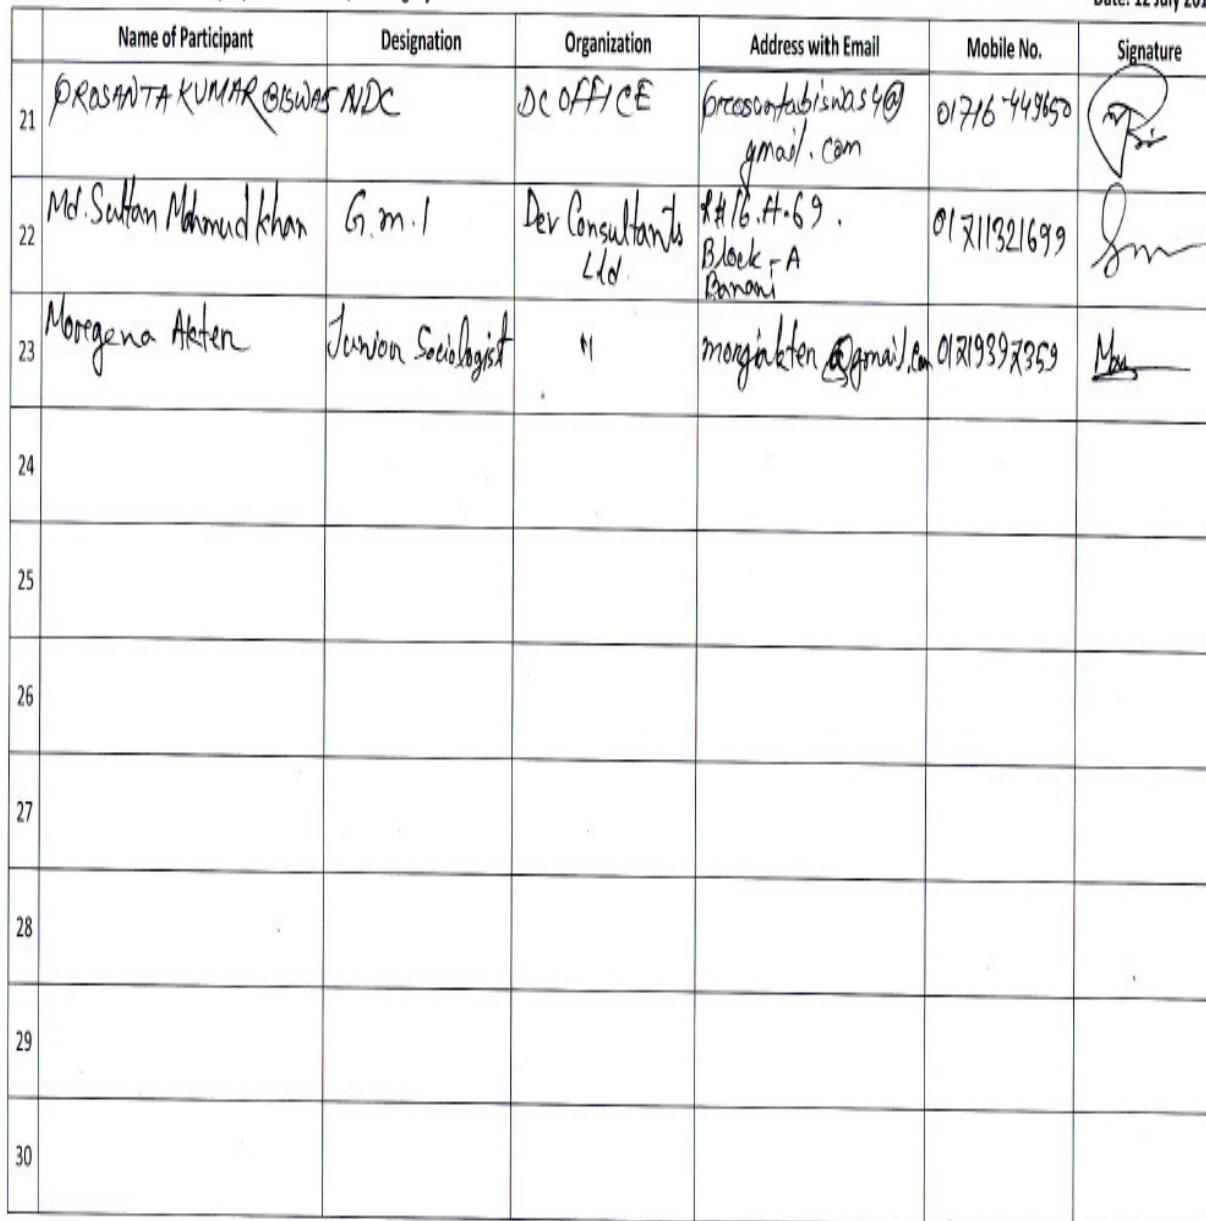 Date: 12 July 201
Name of Participant Designation Organization Address with Email Mobile No. Signature
21 PROSANTA KUMAR BISWAS NDC DC OFFICE prosantabiswas4@ 01716-449650
gmail.com
22 Md. Sultan Mahmud Khan G.m.1 Dev Consultants R#16.H-69. 01711321699
Ltd. Block-A
Banani
23 Moregena Akter Junior Sociologist 〃 morgiakter@gmail.com 01719397359
24
25
26
27
28
29
30